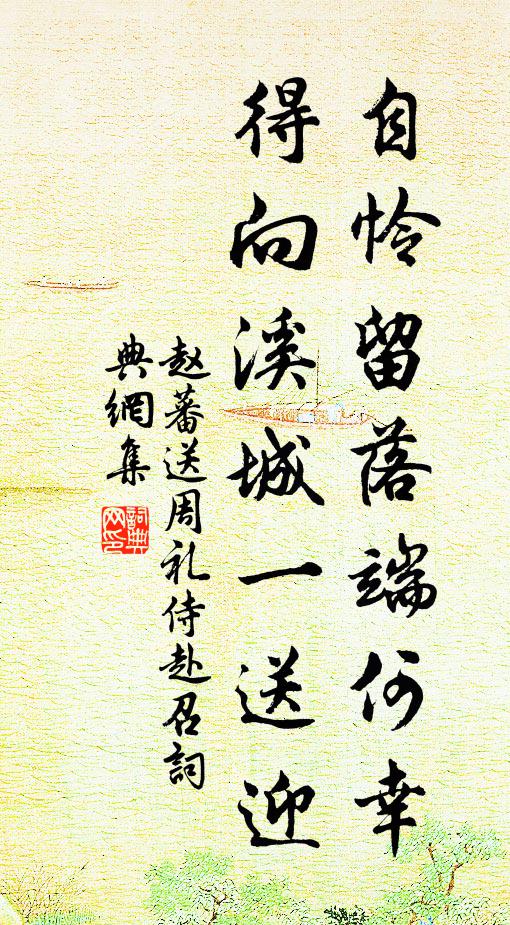 自怜留落端何幸
得向溪城一送迎
赵蕃送周礼侍赴召詞
典網集
詞典
网印